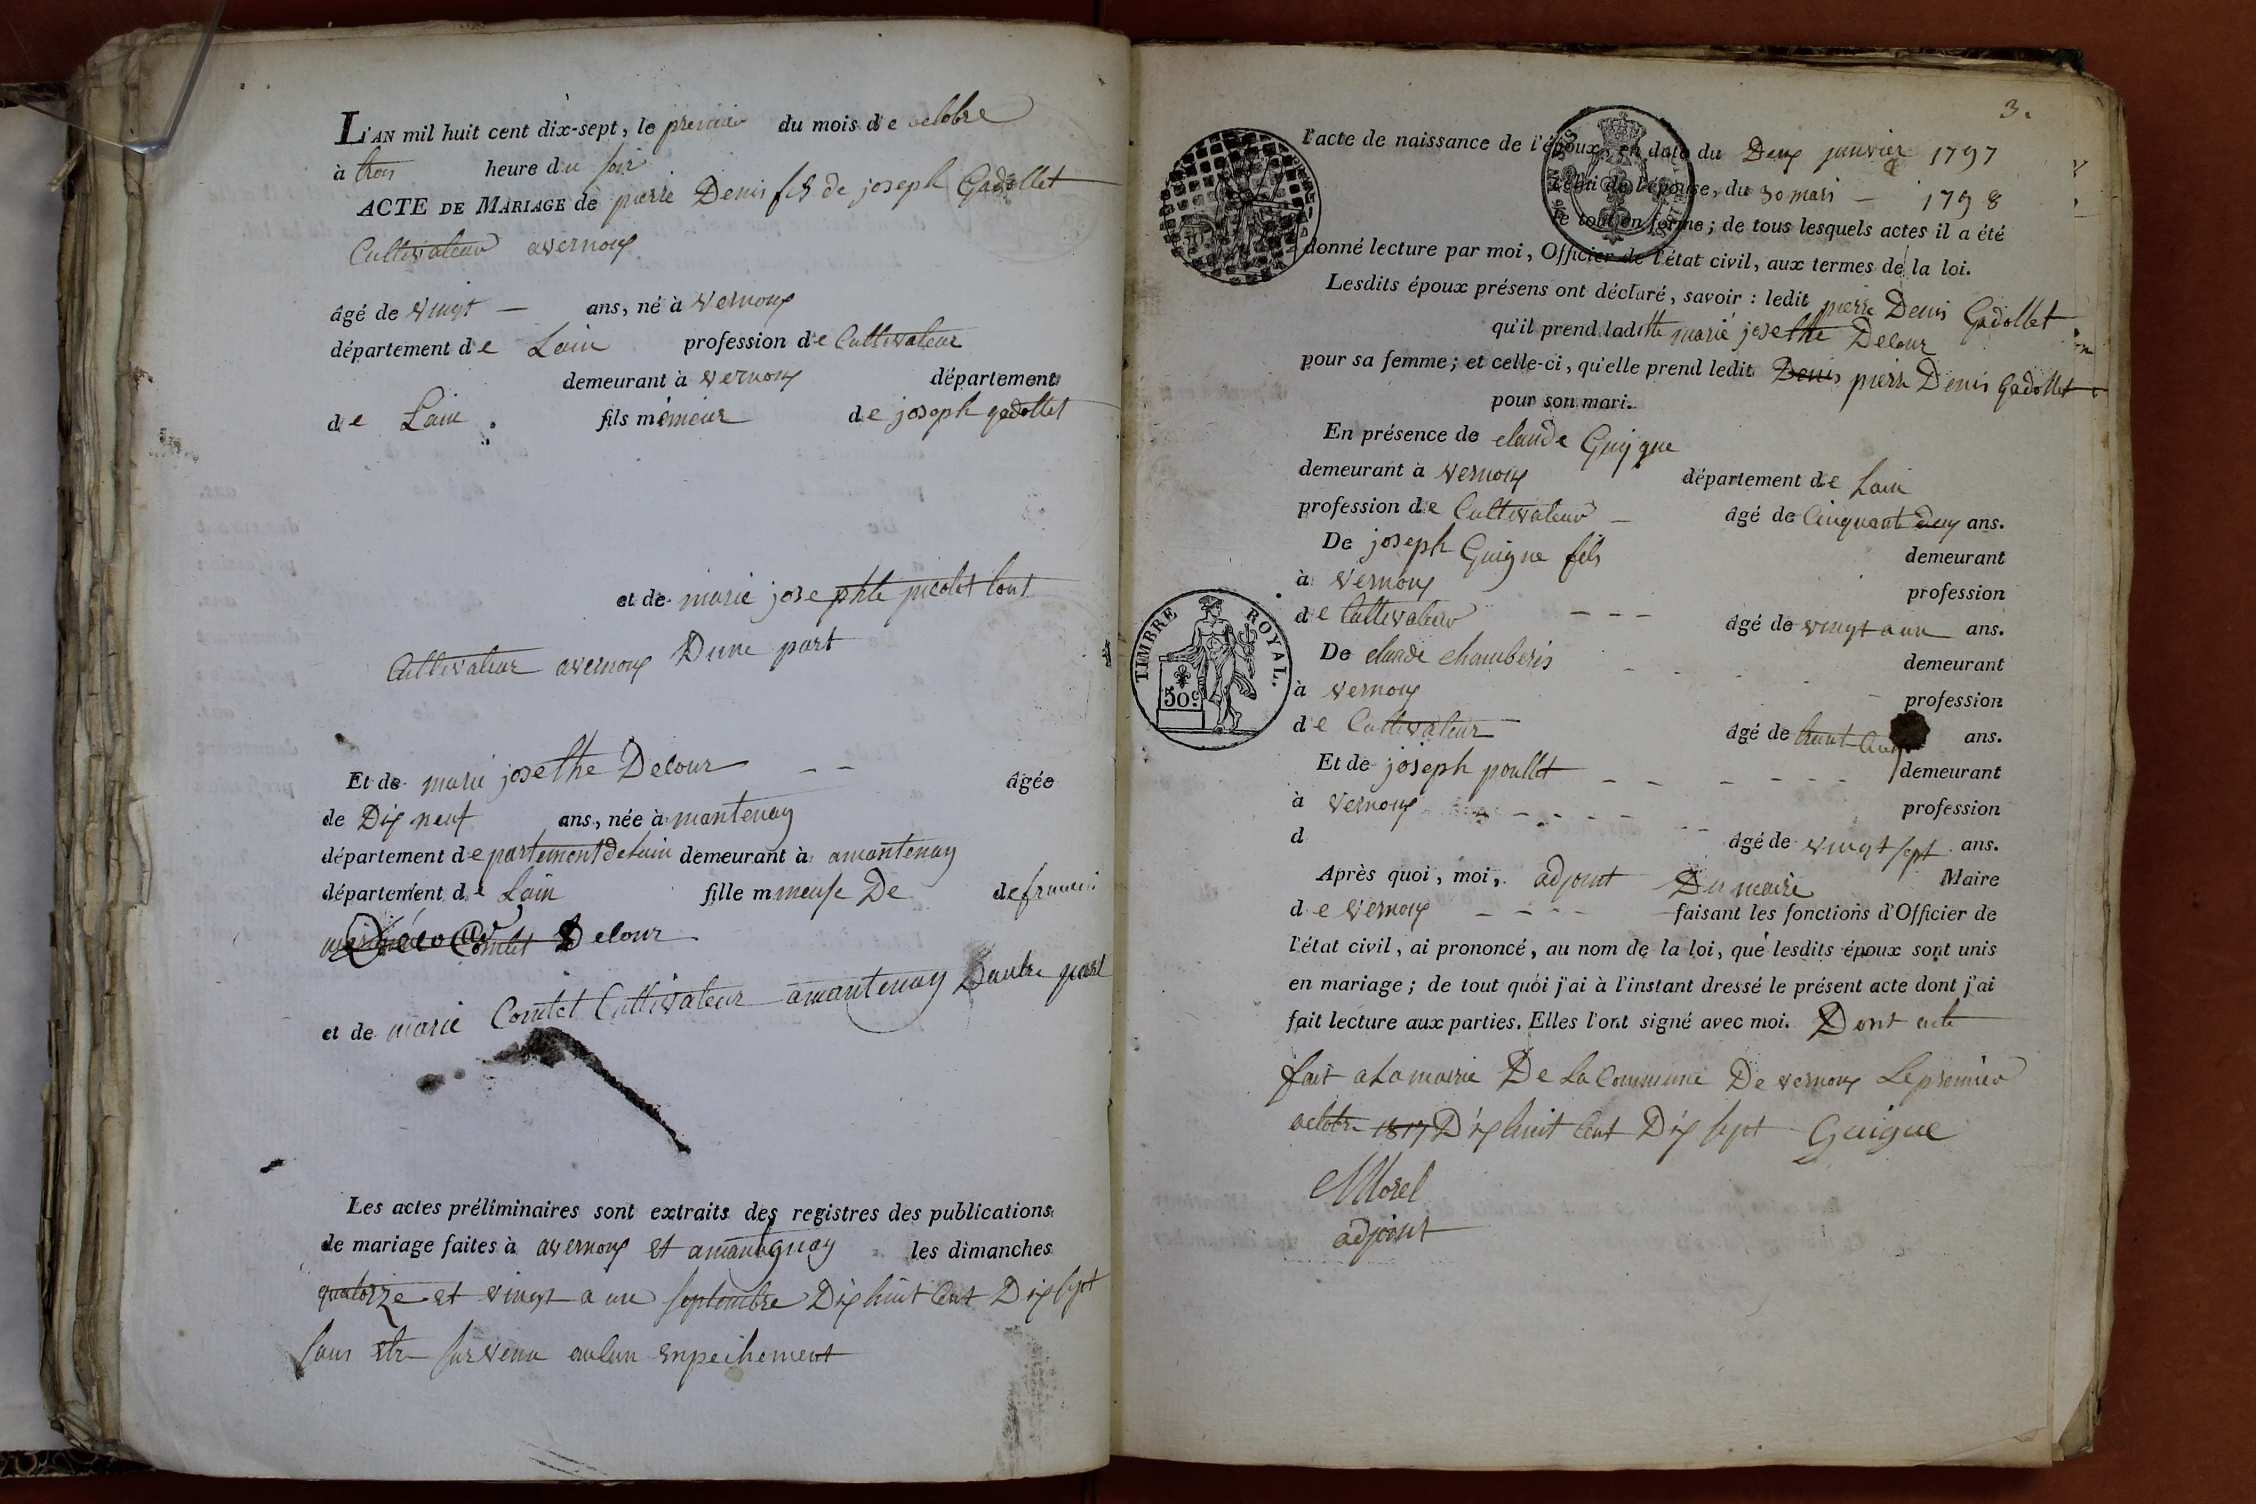 L'AN mil huit cent dix-sept, le premier du mois de octobre
à trois heure du soir
ACTE DE MARIAGE de pierre Denis fils de joseph Gadollet
Cultivateur avernoux
âgé de vingt — ans, né à vernoux
département de Lain profession de Cultivateur
demeurant à vernoux département
de Lain fils mineur de joseph gadollet
et de marie josephte picolet tout
Cultivateur avernoux Dune part
Et de marie josethe Delour âgée
de Dix neuf ans, née à mantenay
département de partement de Lain demeurant à amantenay
département de Lain fille mineuse De de francois
Comtet Delour
et de marie Comtet Cultivateur amantenay Dautre part
Les actes préliminaires sont extraits des registres des publications
de mariage faites à avernoux et amantegnay les dimanches
quatorze et vingt a un septembre Dix huit Cent Dix sept
sans etre survenu aucun enpechement
3.
l'acte de naissance de l'époux, en date du Deux janvier 1797
celui de l'épouse, du 30 mars — 1798
le tout en forme; de tous lesquels actes il a été
donné lecture par moi, Officier de l'état civil, aux termes de la loi.
Lesdits époux présens ont déclaré, savoir : ledit pierre Denis Gadollet
qu'il prend laditte marie josethe Delour
pour sa femme; et celle-ci, qu'elle prend ledit Denis pierre Denis Gadollet
pour son mari.
En présence de claude Guygue
demeurant à vernoux département de Lain
profession de Cultivateur — âgé de Cinquant deux ans.
De joseph Guigue fils demeurant
à vernoux profession
de Cultivateur — — — âgé de vingt a un ans.
De claude chamberis demeurant
à vernoux profession
de Cultivateur âgé de trant ans.
Et de joseph poullet demeurant
à vernoux profession
d âgé de vingt sept ans.
Après quoi, moi, adjoint Du maire Maire
de vernoux faisant les fonctions d'Officier de
l'état civil, ai prononcé, au nom de la loi, que lesdits époux sont unis
en mariage; de tout quoi j'ai à l'instant dressé le présent acte dont j'ai
fait lecture aux parties. Elles l'ont signé avec moi. Dont acte
fait a La mairie De La Commune De vernoux Le premier
octobre 1817 Dix huit Cent Dix sept Guigue
Morel
adjoint
TIMBRE ROYAL.
50c